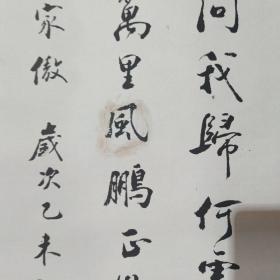 問我歸何處
萬里風鵬正舉
家傲 歲次乙未